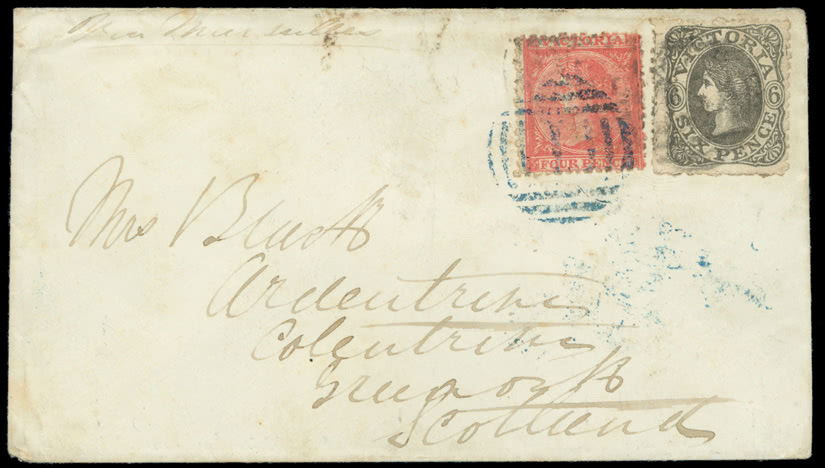 Via Marseilles
VICTORIA
FOUR PENCE
VICTORIA
6 6
SIX PENCE
Mrs Black
Ardentrive
Colentrive
Greenock
Scotland